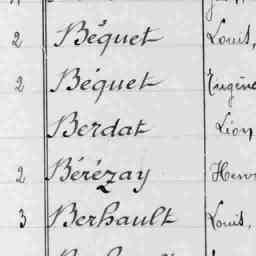 2 Béquet Louis,
2 Béquet Eugène
Berdat Léon
2 Bérézay Henri
3 Berhault Louis,